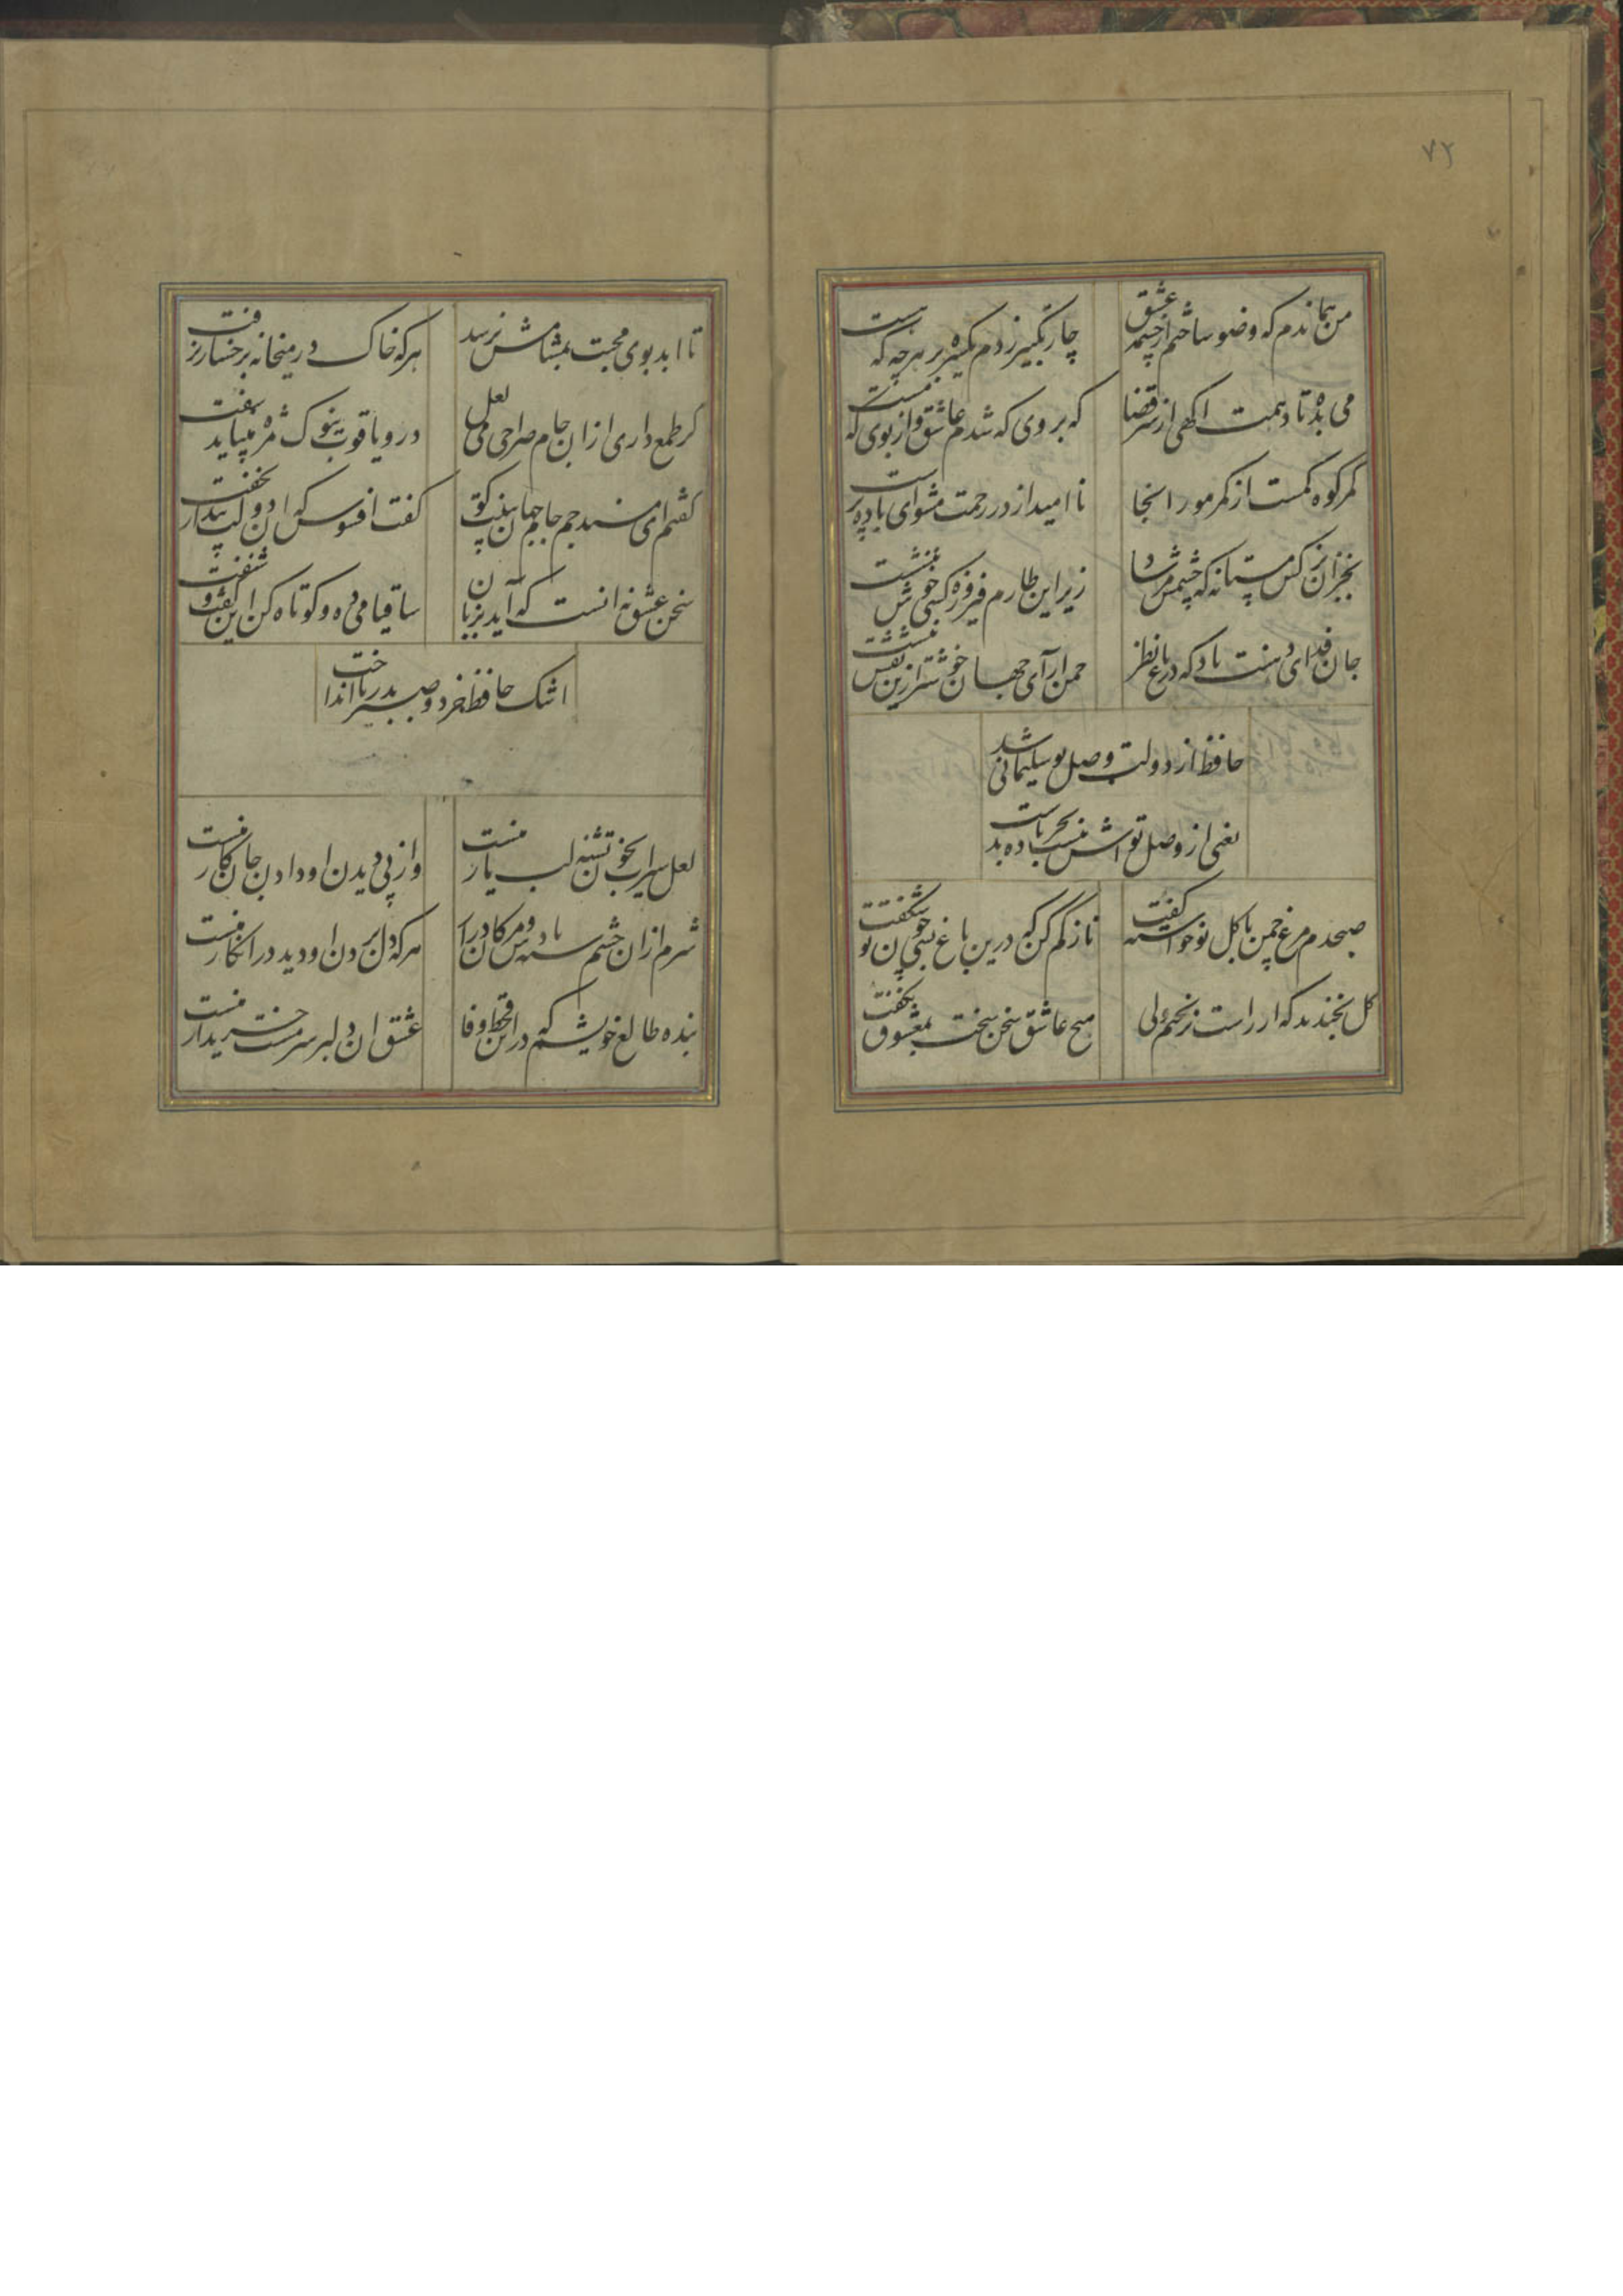 ٧٢
من هماندم که وضو ساختم از چشمه عشق
چار تکبیر زدم یکسره بر هر چه که هست
می بده تا دهمت اکهی از سر قضا
که بروی که شدم عاشق و از بوی که مست
کمر کوه کمست از کمر مور اینجا
ناامید از در رحمت مشو ای باده پرست
بجز آن نرکس مستانه که چشمش مرساد
زیر این طارم فیروزه کسی خوش ننشست
جان فدای دهنت باد که در باغ نظر
چمن آرای جهان خوشتر ازین نفس نبست
حافظ از دولت وصل تو سلیمانی شد
یعنی از وصل تو اش نیست بجز باد بدست
صبحدم مرغ چمن با کل نو خواسته کفت
ناز کم کن که درین باغ بسی چون تو شکفت
کل بخندید که از راست نرنجیم ولی
هیچ عاشق سخن سخت بمعشوق نکفت
تا ابد بوی محبت بمشامش نرسد
هرکه خاک در میخانه برخسار نرفت
کر طمع داری از ان جام صراحی می لعل
در و یاقوت بنوک مژه میباید سفت
کفتم ای مسند جم جام جهان بینت کو
کفت افسوس که ان دولت بیدار بخفت
سخن عشق نه انست که آید بزبان
ساقیا می ده و کوتاه کن این کفت و شنفت
اشک حافظ خرد و صبر بدریا انداخت
لعل سیراب بخون تشنه لب یار منست
وز پی دیدن او دادن جان کار منست
شرم از ان چشم سیه بادش و مژکان دراز
هرکه دل بردن او دید و در انکار منست
بنده طالع خویشم که در این قحط وفا
عشق ان دلبر سرمست خریدار منست